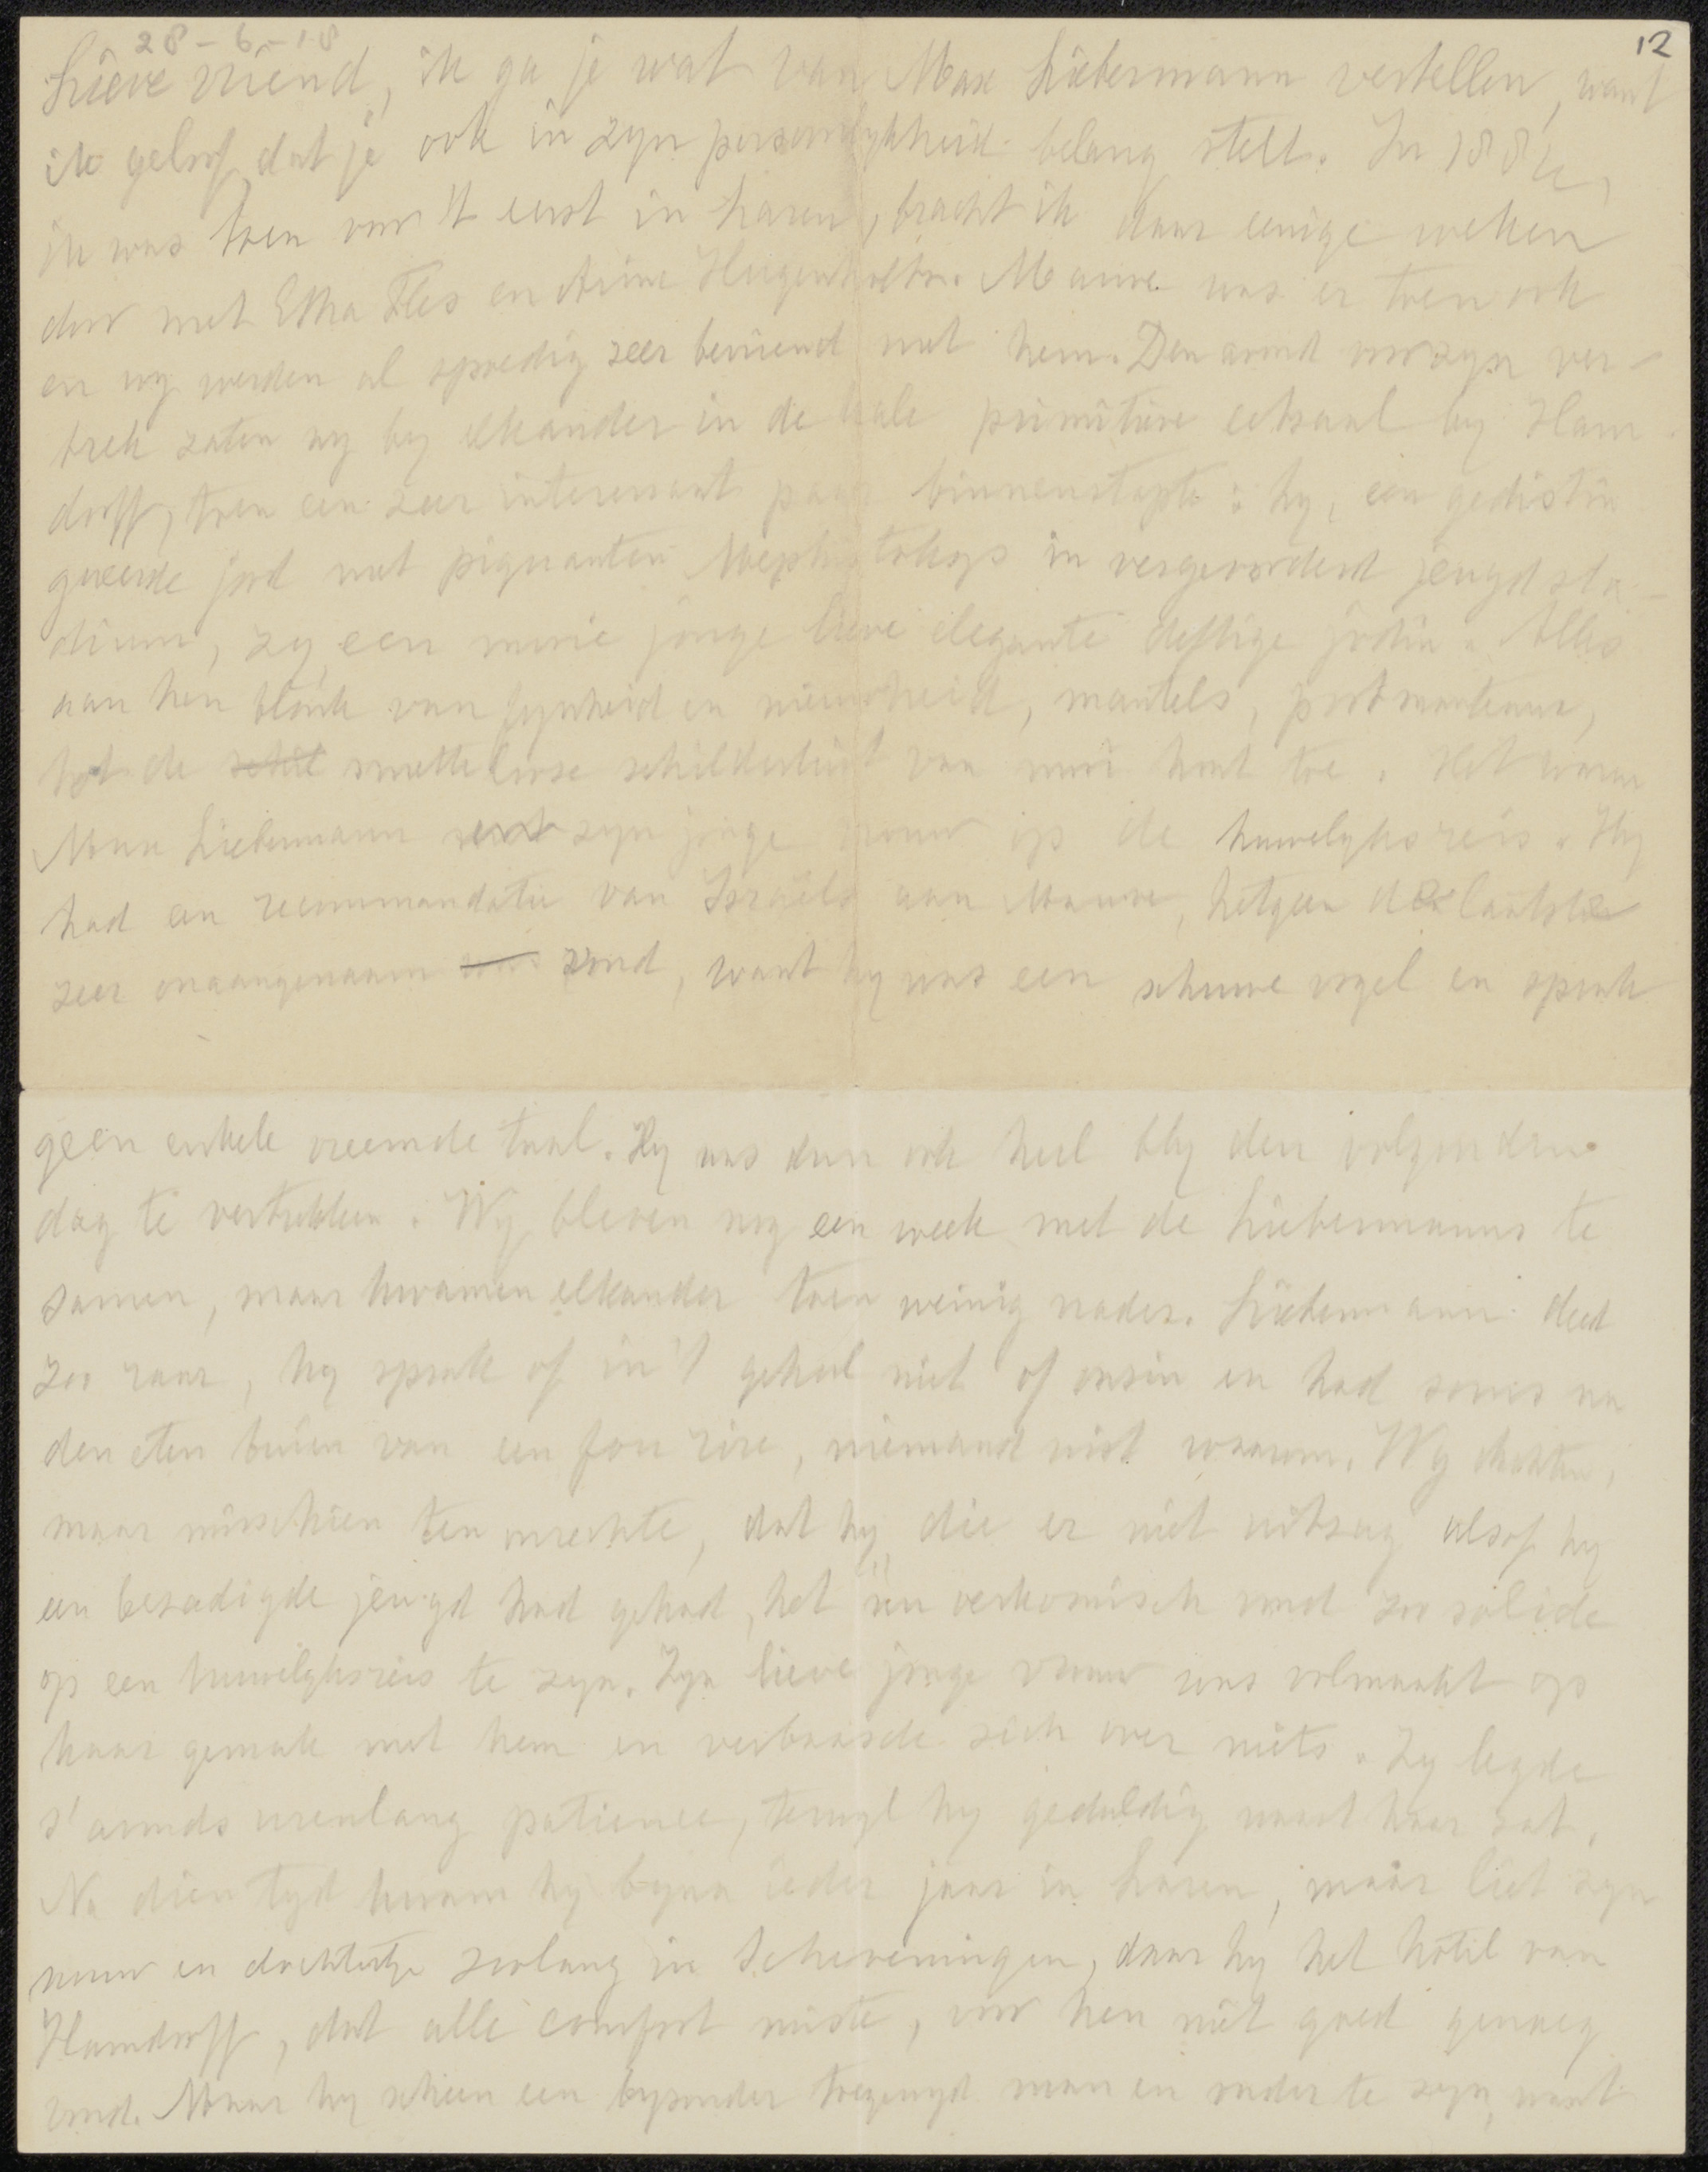 28-6-18
12
Lieve vriend, ik ga je wat van Max Liebermann vertellen, want
ik geloof dat je ook in zyn persoonlykheid belang stelt. In 188
ik was toen voor 't eerst in Laren, bracht ik daar eenige weken
door met Etha Fles en Hugenholtz. Mauve was er toen ook
en wy werden al spoedig zeer bevriend met hem. Den avond voor zyn ver-
trek zaten wy by elkander in de kale primitieve eetzaal by Ham-
dorff, toen een zeer interessant paar binnenstapte: hy, een gedistin
gueerde jood met piquanten Mephistokop in vergevorderd jeugdsta-
dium, zy, een mooie jonge lieve elegante deftige jodin. Alles
aan hen blonk van fynheid en nieuwheid, mantels, portmanteaux,
tot de schil smettelooze schilderkist van mooi hout toe. Het waren
Max Liebermann en zyn jonge vrouw op de huwelyksreis. Hy
had een recommandatie van Israëls aan Mauve, hetgeen de laatste
zeer onaangenaam was vond, want hy was een schuwe vogel en sprak
geen enkele vreemde taal. Hy was dan ook heel bly den volgenden
dag te vertrekken. Wy bleven nog een week met de Liebermanns te
samen, maar kwamen elkander toen weinig nader. Liebermann deed
zoo raar, hy sprak of in 't geheel niet of onzin en had soms na
den eten buien van een fou rire, niemand wist waarom. Wy dachten,
maar misschien ten onrechte, dat hy, die er niet uitzag alsof hy
een bezadigde jeugd had gehad, het nu oerkomisch vond zoo solide
op een huwelyksreis te zyn. Zyn lieve jonge vrouw was volmaakt op
haar gemak met hem en verbaasde zich over niets. Zy legde
s' avonds urenlang patience, terwyl hy geduldig naast haar zat.
Na dien tyd kwam hy byna ieder jaar in Laren, maar liet zyn
vrouw en dochtertje zoolang in Scheveningen, daar hy het hôtel van
Hamdorff, dat alle comfort miste, voor hen niet goed genoeg
vond. Maar hy scheen een byzonder toegenegd man en vader te zyn, want